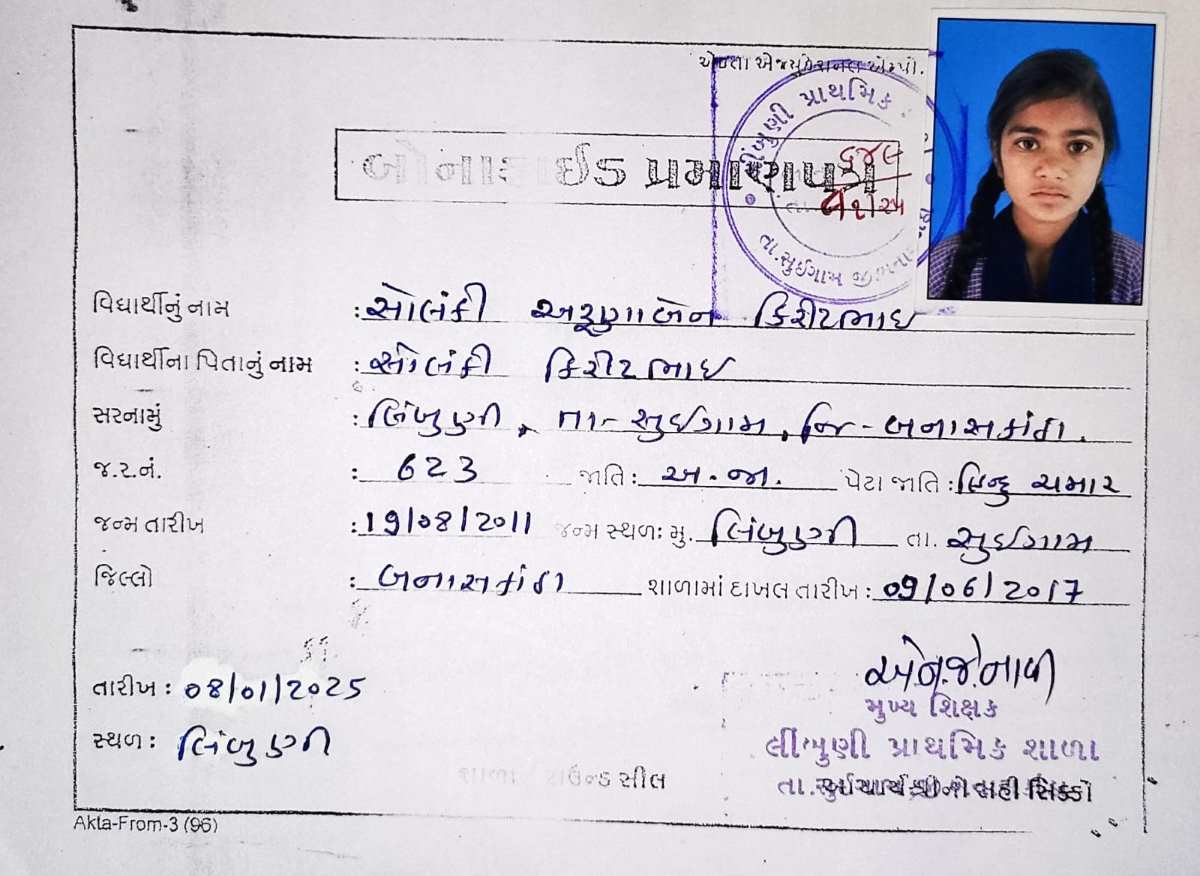 એકતા એજ્યુકેશનલ એમ્પો.
લીંબુણી પ્રાથમિક
તા.સુઈગામ
બોનાફાઈડ પ્રમાણપત્ર
વિદ્યાર્થીનું નામ : સોલંકી અરૂણાબેન કિરીટભાઇ
વિદ્યાર્થીના પિતાનું નામ : સોલંકી કિરીટભાઇ
સરનામું : લિંબુણી, તા- સુઇગામ, જિ-બનાસકાંઠા.
જ.ર.નં. : 623 જાતિ : અ.જા. પેટા જાતિ : હિન્દુ ચમાર
જન્મ તારીખ : 19/08/2011 જન્મ સ્થળઃ મુ. લિંબુણી તા. સુઇગામ
જિલ્લો : બનાસકાંઠા શાળામાં દાખલ તારીખ : 09/06/2017
તારીખ : 08/01/2025
સ્થળ : લિંબુણી
મુખ્ય શિક્ષક
લીંબુણી પ્રાથમિક શાળા
શાળા રાઉન્ડ સીલ
આચાર્યશ્રીની સહી સિક્કો
Akta-From-3 (96)